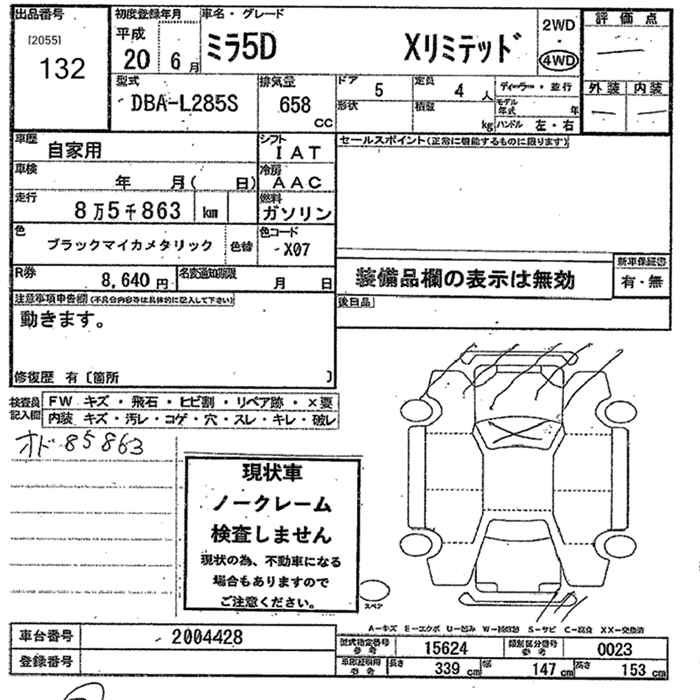 出品番号
[2055]
132
初度登録年月
平成
20 6月
車名・グレード
ミラ5D Xリミテッド
2WD
・
4WD
評価点
外装 内装
型式
DBA-L285S
排気量
658
cc
ドア
5
定員
4人
形状
積載
kg
ディーラー・並行
モデル年式 年
ハンドル 左・右
車歴
自家用
シフト
IAT
車検
年 月( 日)
冷房
AAC
走行
8万5千863 km
燃料
ガソリン
色
ブラックマイカメタリック
色替
色コード
X07
R券
8,640円
名変通知期限
月 日
セールスポイント(正常に機能するものに限ります)
装備品欄の表示は無効
新車保証書
有・無
後日品
注意事項申告欄(不具合内容等は具体的に記入して下さい)
動きます。
修復歴 有〔箇所 〕
検査員記入欄
FW キズ・飛石・ヒビ割・リペア跡・×要
内装 キズ・汚レ・コゲ・穴・スレ・キレ・破レ
オド85863
現状車
ノークレーム
検査しません
現状の為、不動車になる
場合もありますので
ご注意ください。
スペア
A-キズ E-エクボ U-凹み W-補修跡 S-サビ C-腐食 XX-交換済
車台番号
2004428
登録番号
型式指定番号
参考
15624
類別区分番号
参考
0023
参考
長さ
339 cm
幅
147 cm
高さ
153 cm